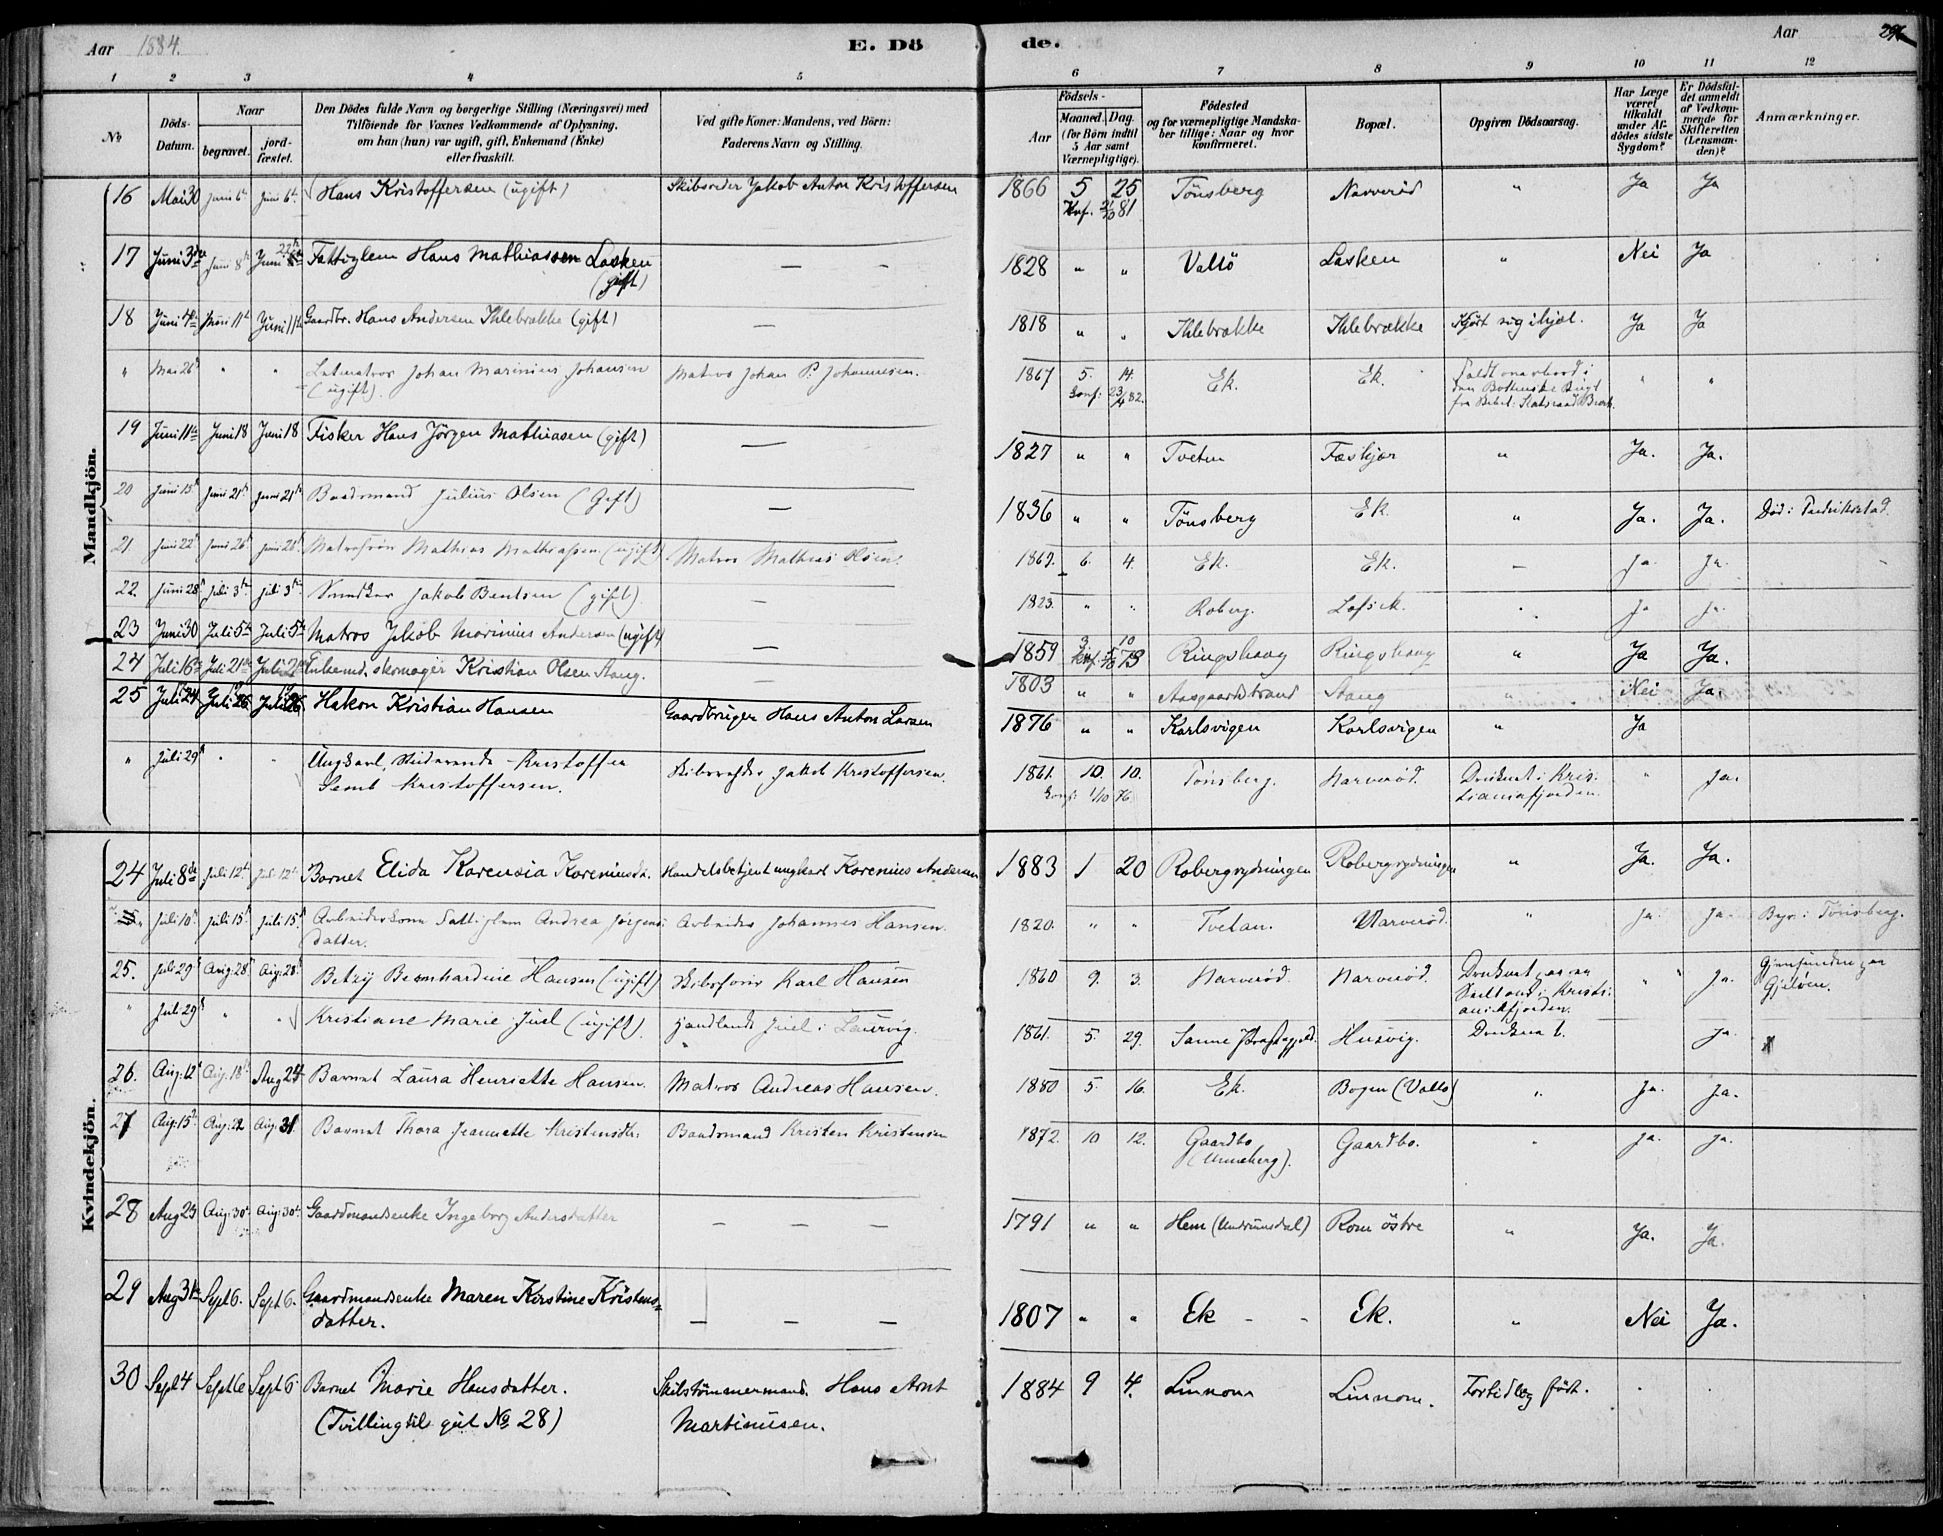 Aar 1884. E. Dö de. Aar 296
1 2 3 4 5 6 7 8 9 10 11 12
No Döds-Datum. Naar begravet. jord-fæstet. Den Dödes fulde Navn og borgerlige Stilling (Næringsvei) med Tilföiende for Voxnes Vedkommende af Oplysning. om han (hun) var ugift, gift, Enkemand (Enke) eller fraskilt. Ved gifte Koner: Mandens, ved Börn: Faderens Navn og Stilling. Födsels- Aar Maaned. Dag. (for Börn indtil 5 Aar samt Værnepligtige). Födested og for værnepligtige Mandskaber tillige: Naar og hvor konfirmeret. Bopæl. Opgiven Dödsaarsag. Har Læge været tilkaldt under Afdödes sidste Sygdom? Er Dödsfaldet anmeldt af Vedkommende for Skifteretten (Lensmanden)? Anmærkninger.
Mandkjön.
16 Mai 30 Juni 6te Juni 6te Hans Kristoffersen (ugift) Skibsreder Jakob Anton Kristoffersen 1866 5 25 Tönsberg Narveröd " Ja Ja
Konf. 2/10 81
17 Juni 3die Juni 8de Juni 22de Fattiglem Hans Mathiassen Lasken — — 1828 " " Vallö Lasken " Nei Ja
(gift)
18 Juni 4de Juni 11te Juni 11te Gaardbr. Hans Andersen Ihlebrække (gift) — 1818 " " Ihlebrække Ihlebrække Kjört sig ihjel. Ja Ja
" Mai 26de " " Letmatros Johan Marinius Johansen Matros Johan P. Johannesen. 1867 5. 14. Ek. Ek. Faldt overbord i
(ugift). Konf: 23/4 82. den Bottniske Bugt
19 Juni 11te Juni 18 Juni 18 Fisker Hans Jörgen Mathiasen (gift) — 1827 " " Tveten Fæskjær " Ja. Ja.
20 Juni 15de Juni 21de Juni 21de Baadsmand Julius Olsen (Gift) — 1836 " " Tönsberg Ek " Ja. Ja. Död i Fredrikstad
21 Juni 22de Juni 26de Juni 26de Matrossön Mathias Mathiassen (ugift) Matros Mathias Olsen. 1869. 6. 4. Ek. Ek. — Ja. Ja.
22. Juni 28de Juli 3die Juli 3die Snedker Jakob Bentsen (gift) — 1823. " " Roberg. Ja Ja.
23 Juni 30 Juli 5te Juli 5te Matros Jakob Marinius Andersen (ugift) — 1859 3 10 Ringshaug Ringshaug " Ja Ja.
24 Juli 16de Juli 21de Juli 21de Enkemd. skomager Kristian Olsen Stang. — 1803 " " Aasgaardstrand Stang " Nei Ja.
25 Juli 24 Juli 26 Juli 26 Hakon Kristian Hansen Gaardbruger Hans Anton Larsen 1876 " " Karlsvigen Karlsvigen " Ja
" Juli 29de " " Ungkarl, Studerende Kristoffer Skibsreder Jakob Kristoffersen. 1861. 10. 10. Tönsberg. Narveröd. Druknet i Kris- " Ja.
Semb Kristoffersen. Konf: 1/10 76 tianiafjorden.
Kvindekjön.
24 Juli 8de Juli 12te Juli 12te Barnet Elida Karensia Koreniusd. Handelsbetjent ungkarl Korenius Andersen 1883 1 20 Robergrydningen Robergrydningen " Ja. Ja.
" Juli 10de Juli 15de Juli 15de Arbeiderkone Fattiglem Andrea Jörgens- Arbeider Johannes Hansen. 1820. " " Tvetan. Narveröd. " Ja. Ja. Bgr. i Tönsberg.
datter.
25. Juli 29de Aug: 28de Aug: 28de Betzy Bernhardine Hansen (ugift) Skibsförer Karl Hansen 1860 9. 3. Narveröd Narveröd. Druknet paa en " Ja. Gjenfunden paa
Seiltour i Kristi- Gjelöen.
aniafjorden.
" Juli 29de " " Kristiane Marie Juel (ugift) Handlende Juel i Laurvig. 1861. 5. 29. Sanne Præstegjeld. Husvig. Druknet. Ja.
26. Aug. 12te Aug. 18de Aug 24 Barnet Laura Henriette Hansen. Matros Andreas Hansen. 1880 5. 16. Ek. Bogen (Vallö) " Ja. Ja.
27 Aug: 15de Aug: 22 Aug: 31 Barnet Thora Jeannette Kristensdtr. Baadsmand Kristen Kristensen 1872. 10 12. Gaardbo Gaardbo. " Ja. Ja.
(Unneberg).
28 Aug 23 Aug: 30te Aug: 30te Gaardmandsenke Ingeborg Andersdatter — — — 1791 " " Hem (Undrumsdal) Rom östre " Ja. Ja.
29 Aug 31te Sept 6. Sept 6. Gaardmandsenke Maren Kirstine Kristens= — — — 1807 " " Ek - - Ek. " Nei Ja.
datter.
30 Sept 4 Sept 6 Sept 6 Barnet Marie Hansdatter. Skibstömmermand. Hans Arnt 1884 9 4. Linnom Linnom. Fortidlig födt. . .
(Tvilling til gut No 28) Martinusen.